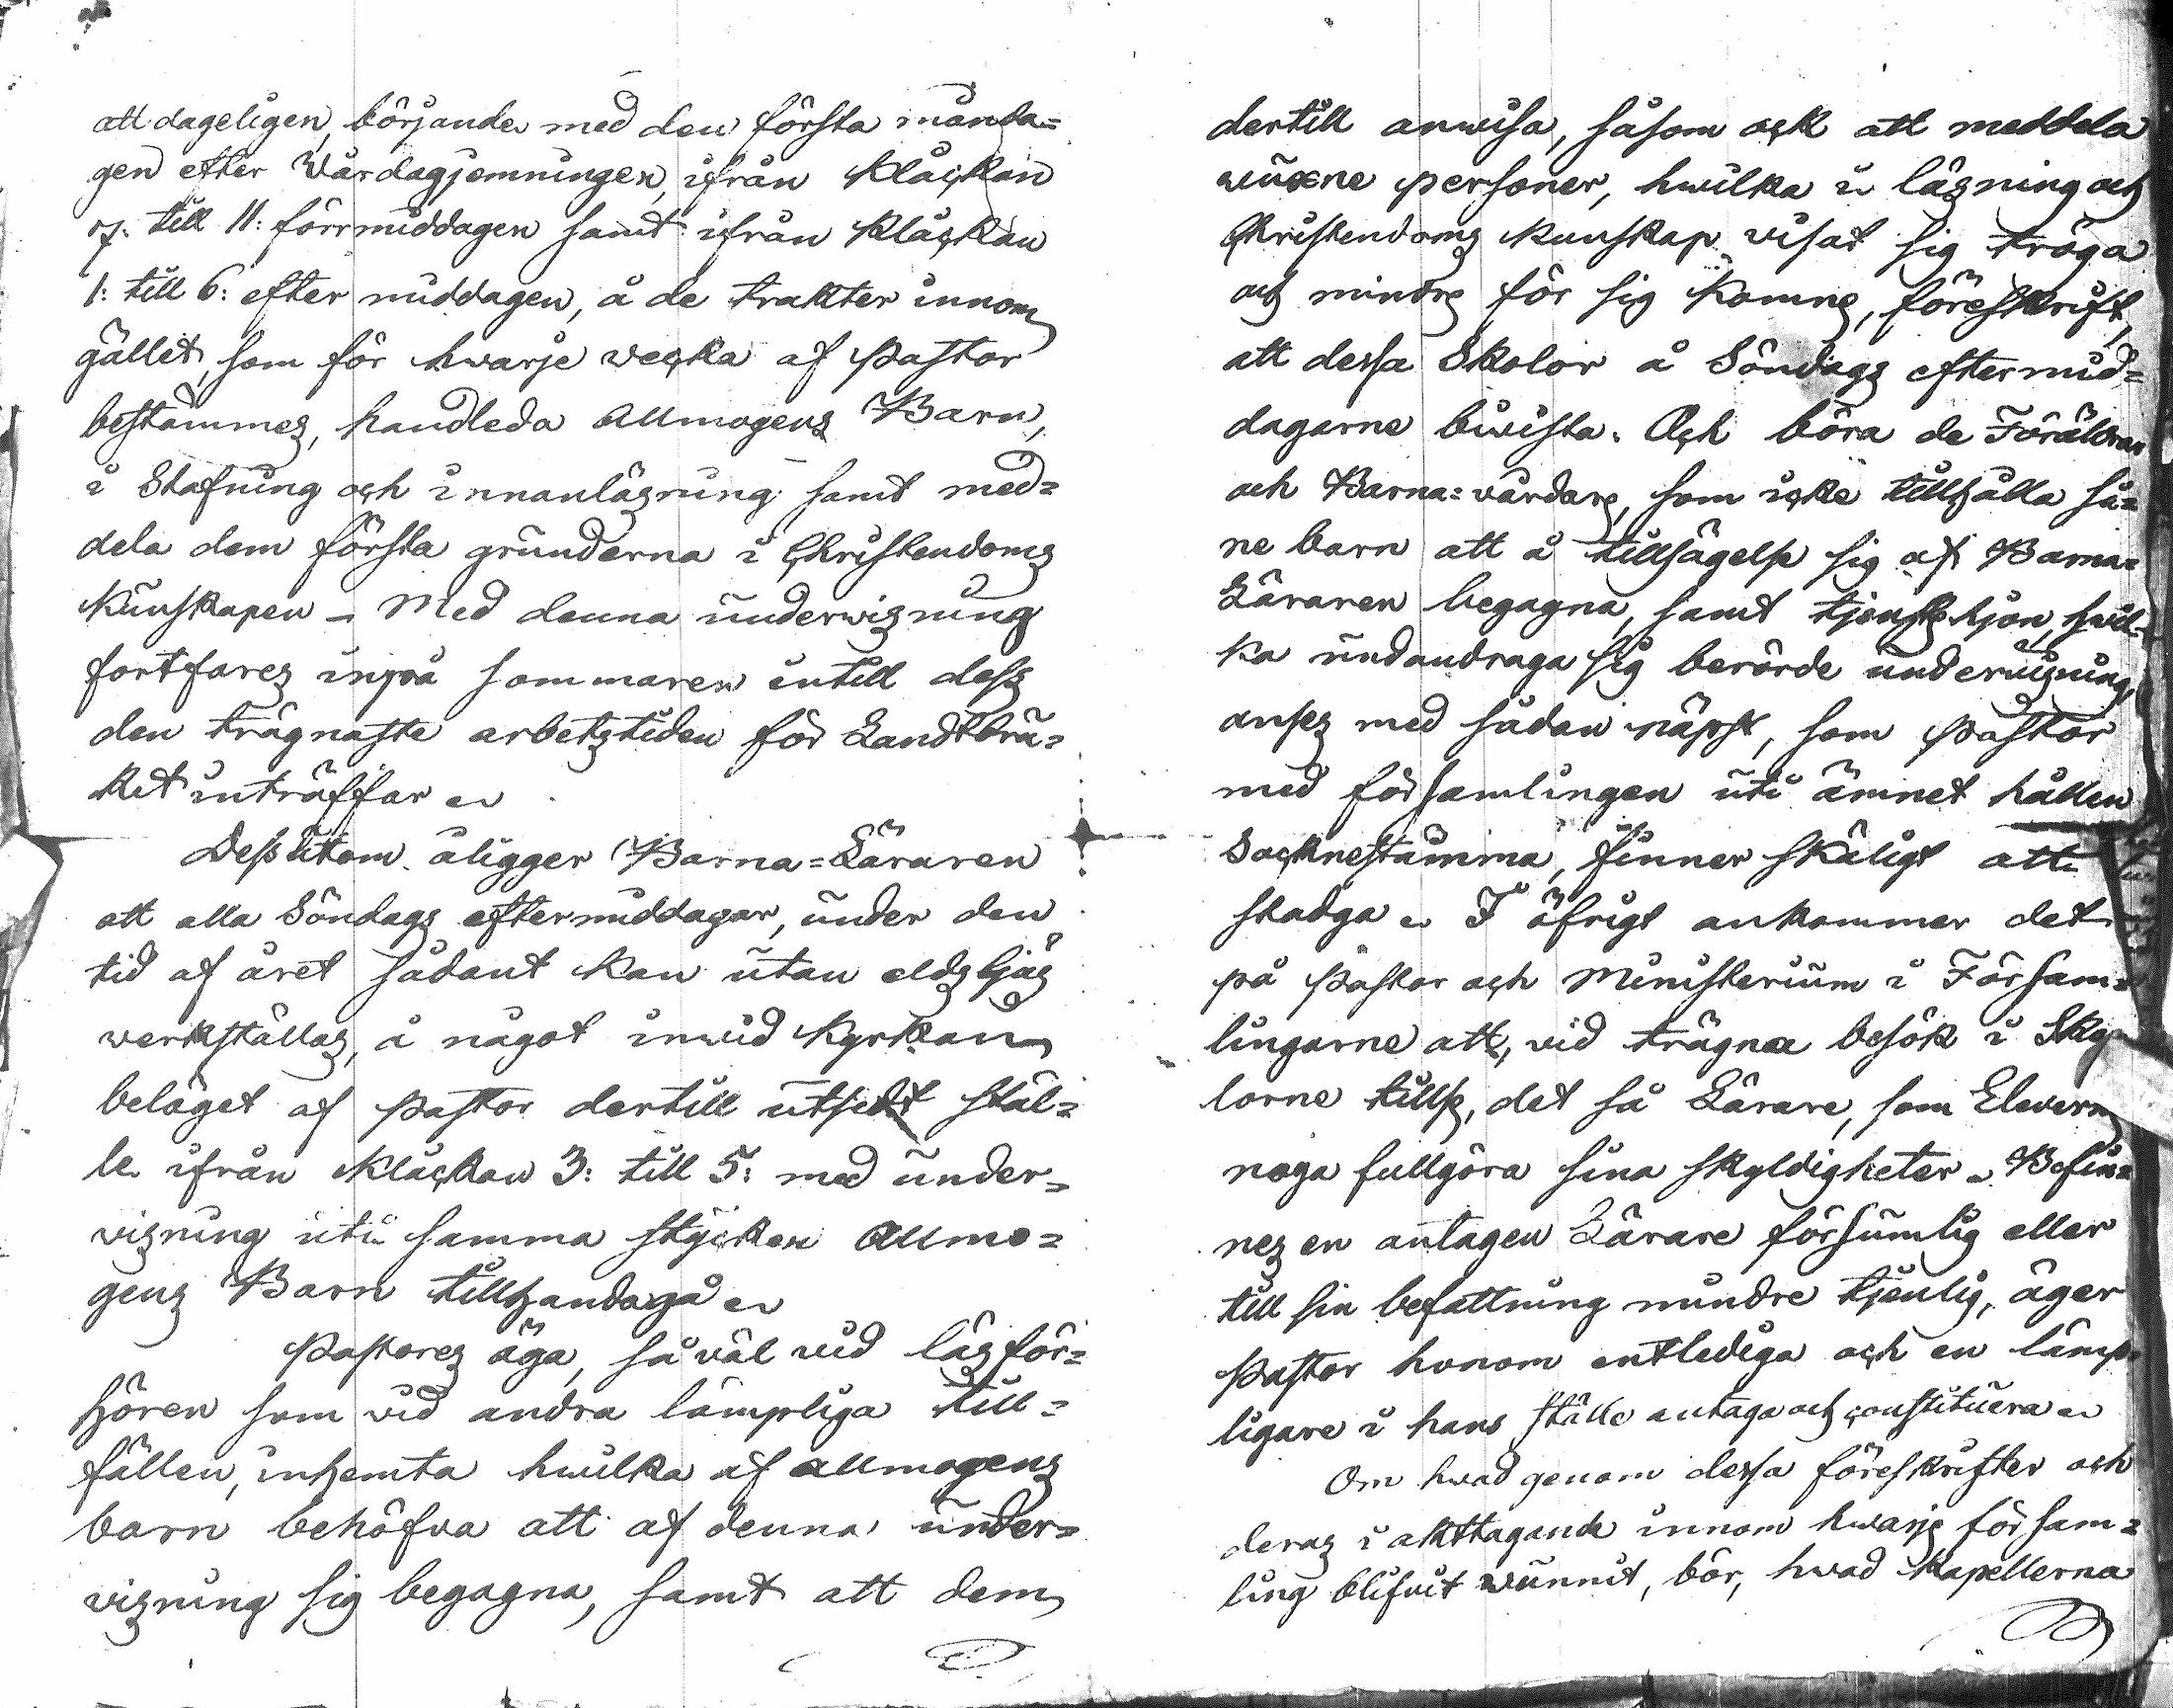 att dageligen, börjande med den första månda=
gen efter Vårdagjemningen, ifrån Klåckan
7. till 11: förrmiddagen samt ifrån Klåckan
1: till 6: efter middagen, å de trakter innom
gället, som för hwarje vecka af Pastor
bestämmes, handleda Allmogens Barn,
i Stafning och innanläsning samt med=
dela dem första grunderna i Christendoms
Kunskapen – Med denna underwisning
fortfares inpå sommaren intill dess
den trägnaste arbetstiden för Landtbru=
ket inträffar
Dessutom åligger Barna=Läraren
att alla Söndags eftermiddagar, under den
tid af året sådant kan utan eldsljus
werkställas, å något inwid Kyrkan
beläget af Pastor dertill utsedt stäl=
le ifrån Klåckan 3: till 5: med under=
visning uti samma stycken Allmo=
gens Barn tillhandagå
Pastores äga, så väl vid läsför=
hören som vid andra lämpliga till=
fällen, inhemta hwilka af allmogens
barn behöfva att af denna under=
visning sig begagna, samt att dem
dertill anwisa, såsom ock att meddela
wuxne personer, hwilka i läsning och
Christendoms kunskap visat sig tröga
och mindre för sig komne, föreskrift,
att dessa Skolor å Söndags eftermid=
dagarne biwista. Och böra de Föräldrar
och Barna=vårdare, som icke tillhålla si=
ne barn att å tillsägelse sig af Barna=
Läraren begagna, samt tjenstehjon, hwil=
ka undandraga sig berörde undervisning,
anses med sådan näpst, som Pastor
med församlingen uti ämnet hållen
Socknestämma, finner skäligt att
stadga I öfrigt ankommer det
på Pastor och Ministerium i Försam=
lingarne att, vid trägna besök i Sko
lorne tillse, det så Lärare, som Elever
noga fullgöra sina skyldigheter – Befin=
nes en antagen Lärare försumlig eller
till sin befattning mindre tjenlig, äger
Pastor honom entlediga och en lämp
ligare i hans ställe antaga och constituera
Om hwad genom dessa föreskrifter och
deras i akttagande innom hwarje församl=
ling blifvit wunnit, bör, hwad Kapellerna